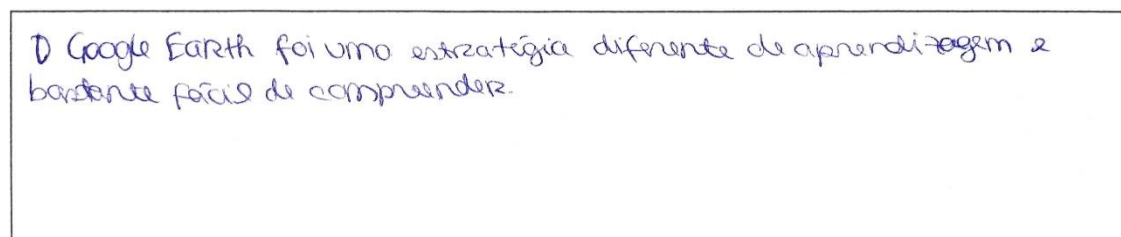 O Google Earth foi uma estratégia diferente de aprendizagem e
bastante fácil de compreender.